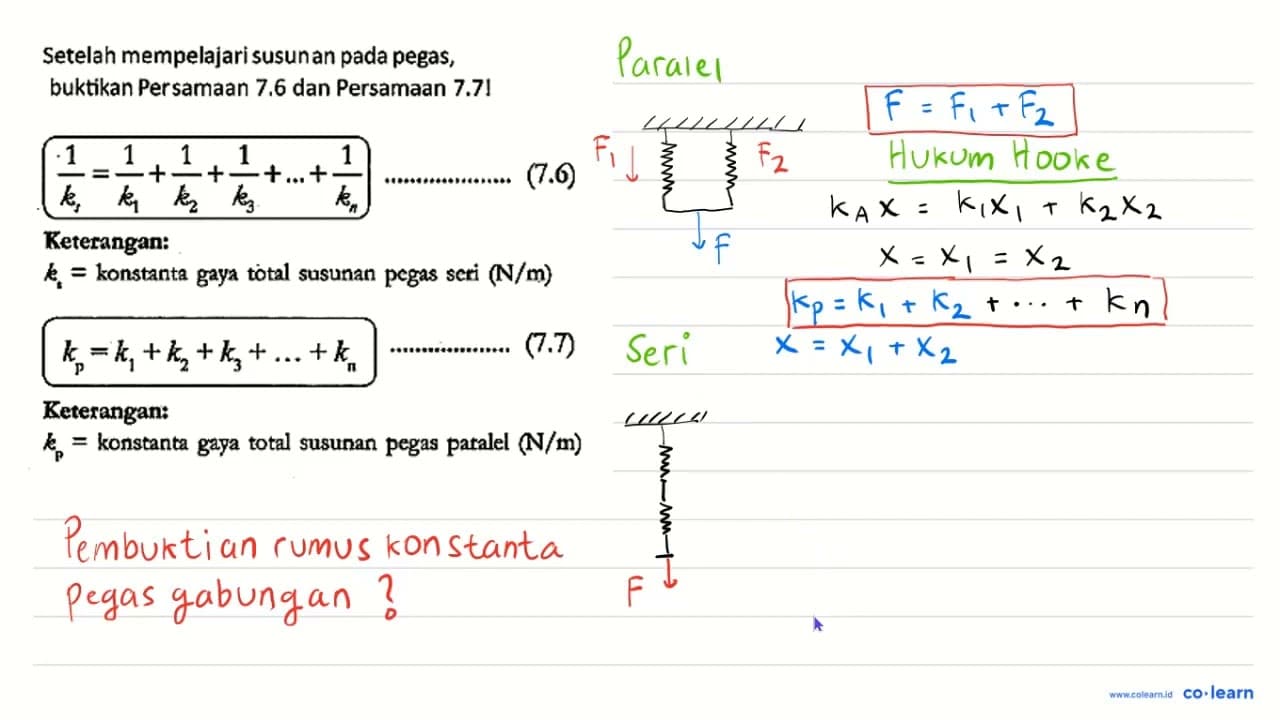 Setelah mempelajari susunan pada pegas,
buktikan Persamaan 7.6 dan Persamaan 7.7!
1/k_s = 1/k_1 + 1/k_2 + 1/k_3 + ... + 1/k_n .................... (7.6)
Keterangan:
k_s = konstanta gaya total susunan pegas seri (N/m)
k_p = k_1 + k_2 + k_3 + ... + k_n ................... (7.7)
Keterangan:
k_p = konstanta gaya total susunan pegas paralel (N/m)
Pembuktian rumus konstanta
pegas gabungan ?
Paralel
F_1
F_2
F
F = F_1 + F_2
Hukum Hooke
k_A x = k_1 x_1 + k_2 x_2
x = x_1 = x_2
k_p = k_1 + k_2 + ... + k_n
Seri
x = x_1 + x_2
F
www.colearn.id co·learn